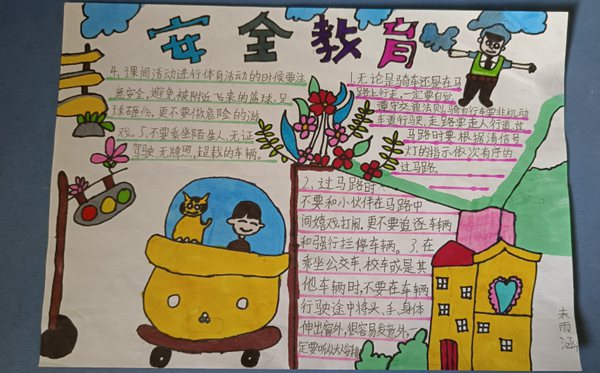 安全教育
4、课间活动进行体育活动的时候要注
意安全,避免被附近飞来的篮球、足
球砸伤。更不要做危险的游
戏。5、不要乘坐陌生人、无证
驾驶、无牌照,超载的车辆。
1、无论是骑车还是在马
路上行走,一定要自觉
遵守交通法则。骑自行车要非机动
车道行驶,走路要走人行道,过
马路时要根据清信号
灯的指示依次有序的
过马路。
2、过马路时
不要和小伙伴在马路中
间嬉戏打闹,更不要追逐车辆
和强行拦停车辆。3、在
乘坐公交车、校车或是其
他车辆时,不要在车辆
行驶途中将头、手、身体
伸出窗外,很容易发意外,一
定要听从大人安排
雨涵